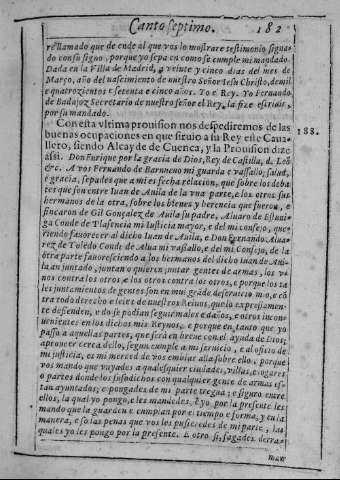 Canto septimo. 182
re llamado que de ende al que vos lo mostrare testimonio signa-
do con su signo, porque yo sepa en como se cumple mi mandado.
Dada en la Villa de Madrid, a veinte y cinco dias del mes de
Março, año del nascimiento de nuestro Señor Iesu Christo, de mil
e quatrozientos e setenta e cinco años. Yo e Rey. Yo Fernando
de Badajoz Secretario de nuestro señor el Rey, la fize escriuir,
por su mandado.
Con esta vltima prouision nos despediremos de las
buenas ocupaciones en que siruio a su Rey este Caua-
llero, siendo Alcayde de Cuenca, y la Prouision dize
assi. Don Enrique por la gracia de Dios, Rey de Castilla, de Leõ
&c. A vos Fernando de Barrneno mi guarda e vassallo, salud,
e gracia, sepades que a mi es fecha relacion, que sobre los deba-
tes que son entre Iuan de Auila de la vna parte, e los otros sus
hermanos de la otra, sobre los bienes y herencia que fueron, e
fincaron de Gil Gonçalez de Auila su padre, Aluaro de Estuni-
ga Conde de Plasencia mi Iusticia mayor, e del mi consejo, que-
riendo fauorecer al dicho Iuan de Auila, e Don Fernando Alua-
rez de Toledo Conde de Alua mi vassallo, e del mi Consejo, de la
otra parte fauoresciendo a los hermanos del dicho Iuan de Aui-
la an juntado, juntan o quieren juntar gentes de armas, los v-
nos contra los otros, e los otros contra los otros, e porque los ta-
les juntamientos de gentes son en mui grãde deseruicio mio, e cõ-
tra todo derecho e leies de nuestros Reinos, que lo expresamen-
te defienden, e do se podian seguir males e daños, e otros incon-
uenientes en los dichos mis Reynos, e porque en tanto que yo
passo a aquellas partes, que será en breue con el ayuda de Dios,
a proueer cerca dello, segun cumple a mi seruicio, e al oficio de
mi justicia, es mi merced de vos embiar alla sobre ello, porque
vos mando que vayades a qualesquier ciudades, villas, e logares
o partes donde los susodichos con qualquier gente de armas es-
tan ayuntados, e pongades de mi parte tregua, e siguro entre
ellos, la qual yo pongo, e les mandedes, e yo por la presente les
mando que la guarden e cumplan por el tiempo e forma, y en la
manera, e so las penas que vos les pusieredes de mi parte, las
quales yo les pongo por la presente. E otro si, fagades derra-
mar
188.